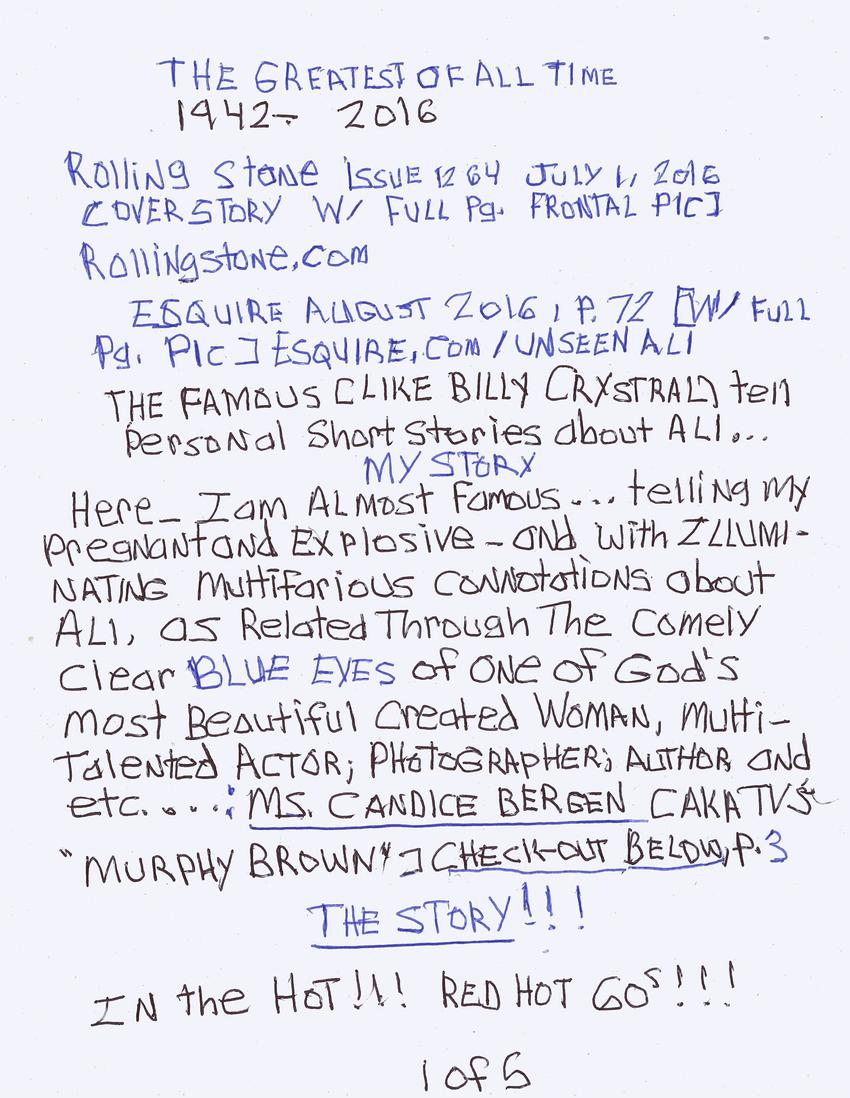 THE GREATEST OF ALL TIME
1942- 2016
Rolling Stone ISSUE 1264 JULY 1, 2016
COVER STORY W/ FULL Pg. FRONTAL PIC]
Rollingstone.com
ESQUIRE AUGUST 2016, P. 72 [W/ FULL
Pg. PIC] ESQUIRE.COM/UNSEEN ALI
THE FAMOUS [LIKE BILLY CRYSTRAL] tell
Personal Short Stories about ALI...
MY STORY
Here_ I am ALMOST FAMOUS... telling MY
PREGNANT and EXPlosive - and with ILLUMI-
NATING Multifarious CONNOTATIONS about
ALI, as Related Through The Comely
Clear BLUE EYES of ONE of God's
most Beautiful Created WOMAN, Multi-
Talented ACTOR; PHOTOGRAPHER; AUTHOR and
etc....: MS. CANDICE BERGEN [AKA TV'S
"MURPHY BROWN"] CHECK-OUT BELOW, P. 3
THE STORY!!!
IN the HOT!!! RED HOT 60s!!!
1 of 5